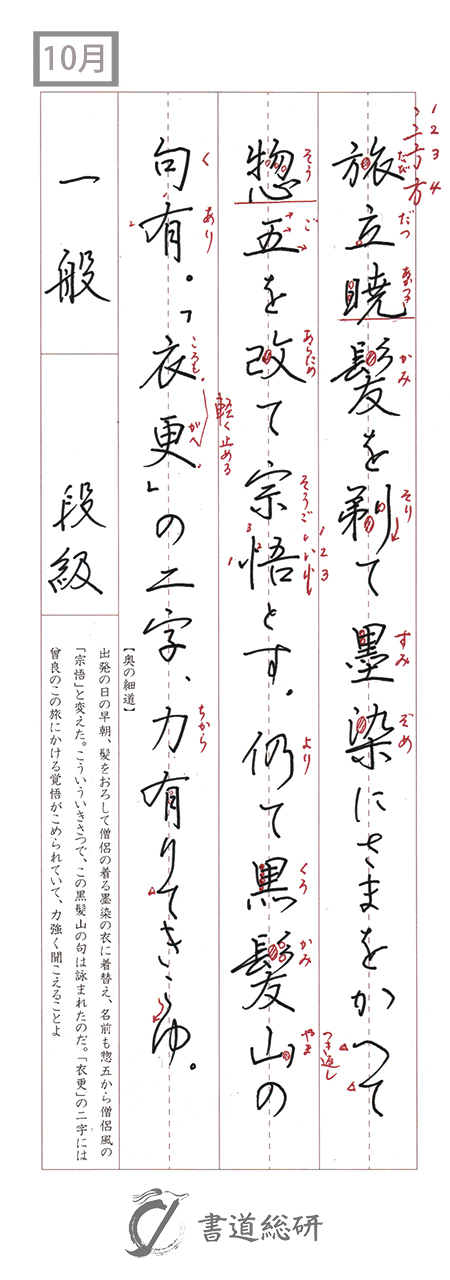 10月
旅立暁髪を剃て墨染にさまをかへて
惣五を改て宗悟とす。仍て黒髪山の
句有。「衣更」の二字、力有りてきこゆ。
たび
だつ
あかつき
かみ
そり
すみ
ぞめ
つき返し
1 2 3 4
そう
ご
あらため
そうご
1 2 3
より
くろ
かみ
やま
く
あり
ころも
がへ
軽く止める
ちから
一般
段級
【奥の細道】
出発の日の早朝、髪をおろして僧侶の着る墨染の衣に着替え、名前も惣五から僧侶風の
「宗悟」と変えた。こういういきさつで、この黒髪山の句は詠まれたのだ。「衣更」の二字には
曾良のこの旅にかける覚悟がこめられていて、力強く聞こえることよ
書道総研